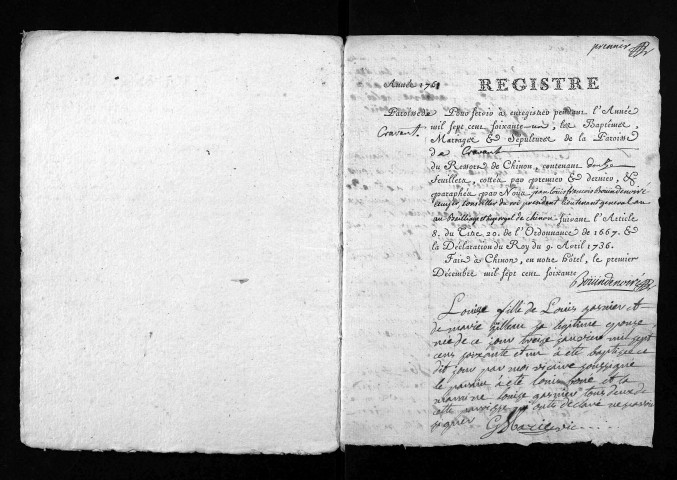 premier
Année 1761
REGISTRE
Paroisse de
Cravant.
Pour servir à enregistrer pendant l'Année
mil sept cent soixante-un, les Baptêmes,
Mariages & Sépultures de la Paroisse
de Cravant
du Ressort de Chinon, contenant douze
feuillets, cottés par premier & dernier, &
paraphés par Nous, Jean Louis françois
Conseiller du roi president lieutenant general au
au Bailliage et siege royal de chinon suivant l'Article
8. du Titre 20. de l'Ordonnance de 1667. &
la Déclaration du Roy du 9. Avril 1736.
Fait à Chinon, en notre hôtel, le premier
Décembre mil sept cent soixante
Louise fille de Louis garnier et
de marie gilleau sa legitime epouse
née de ce jour treize janvier mil sept
cens soixante et un a été baptisée ce
dit jour par moi vicaire soussigné
le parain a été louis et la
maraine louise garnier tous deux de
cette paroisse qui ont declaré ne savoir
signer